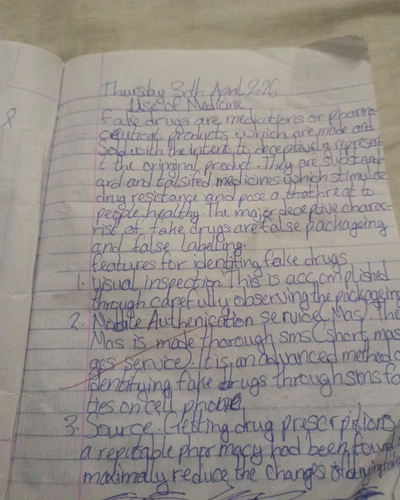 Thursday 30th April 2026
Use of Medicine
Fake drugs are medications or pharma-
ceutical products which are made and
Sold with the intent to deceptively represent
t the original product. They are substand-
ard and falsifed medicines which stimulate
drug resistance and pose a threat to
people healthy. The major deceptive charac-
rist of fake drugs are false packageing
and false labeling.
features for identiting fake drugs
1. Visual inspection This is accomplished
through carefully observing the packageing
2. Mobile Authenication service (Mas) The
Mas is made thorough sms (short mas
ges service). It is an advanced method o
identifying fake drugs through sms fa
ties on cell phone
3. Source: Getting drug prescripitions
a reputable pharmacy had been found
maximally reduce the changes of buying fake